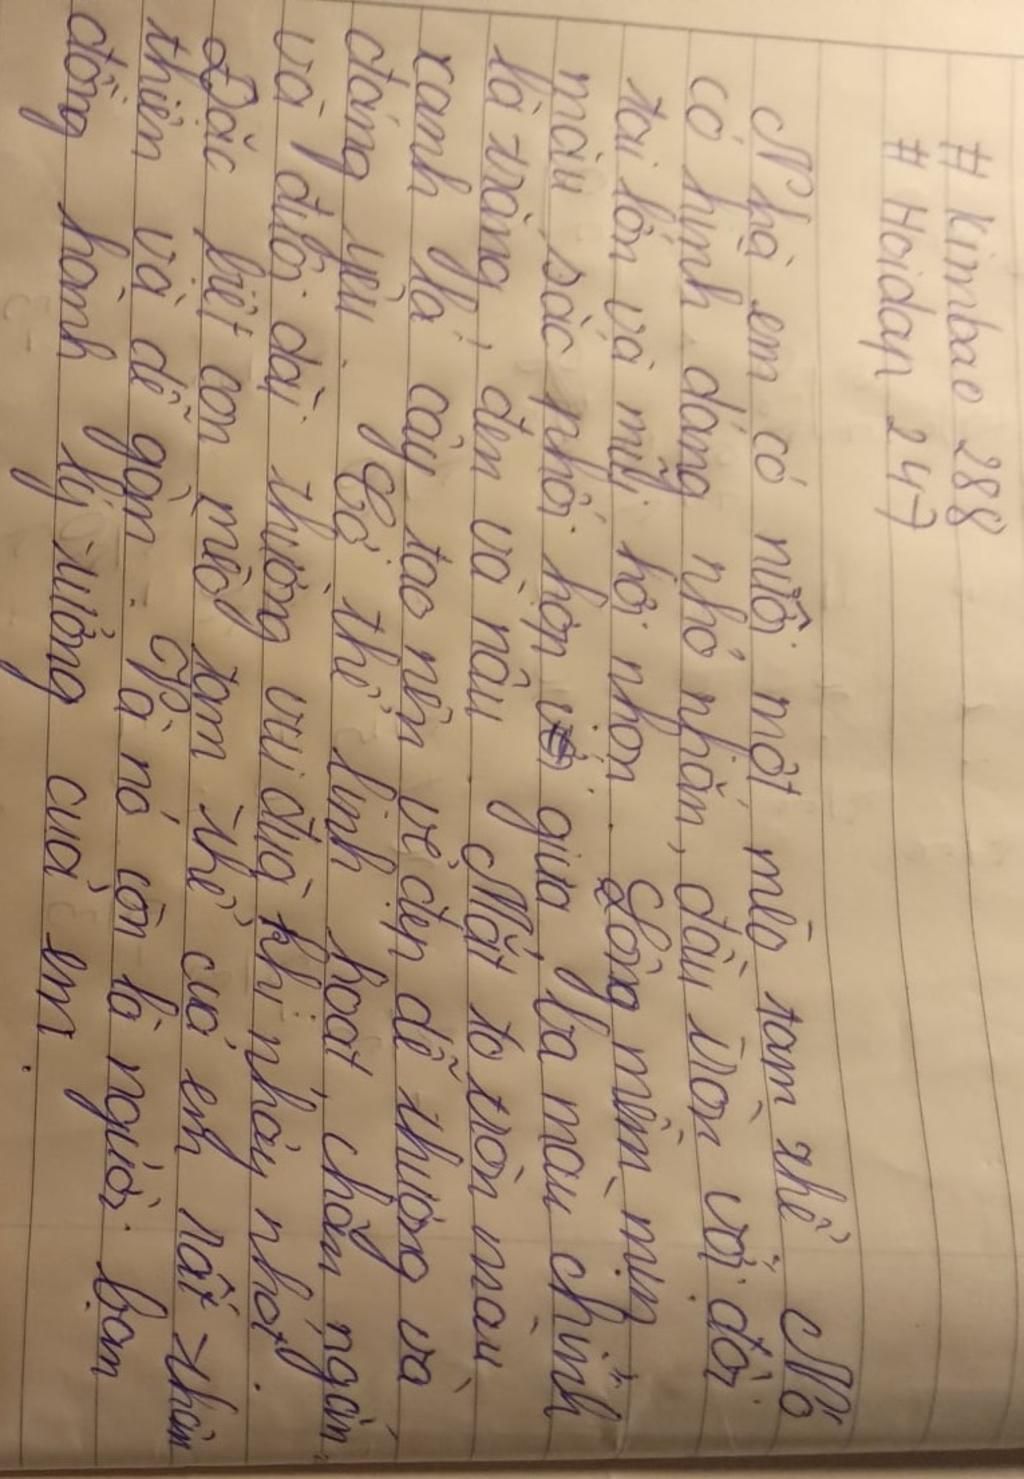 # Kimbao 288
# Hoidap 247
Nhà em có nuôi một mèo tam thể. Nó
có hình dáng nhỏ nhắn, đầu tròn với đôi
tai lớn và mũi hơi nhọn. Lông mềm mịn
màu sắc phối hợp giữa ba màu chính
là trắng, đen và nâu. Mắt to tròn màu
xanh lá cây tạo nên vẻ đẹp dễ thương và
đáng yêu. Cơ thể linh hoạt, chân ngắn
và đuôi dài thường vui đùa khi nhảy nhót.
Đặc biệt con mèo tam thể của em rất thân
thiện và dễ gần. Và nó còn là người bạn
đồng hành lý tưởng của em.